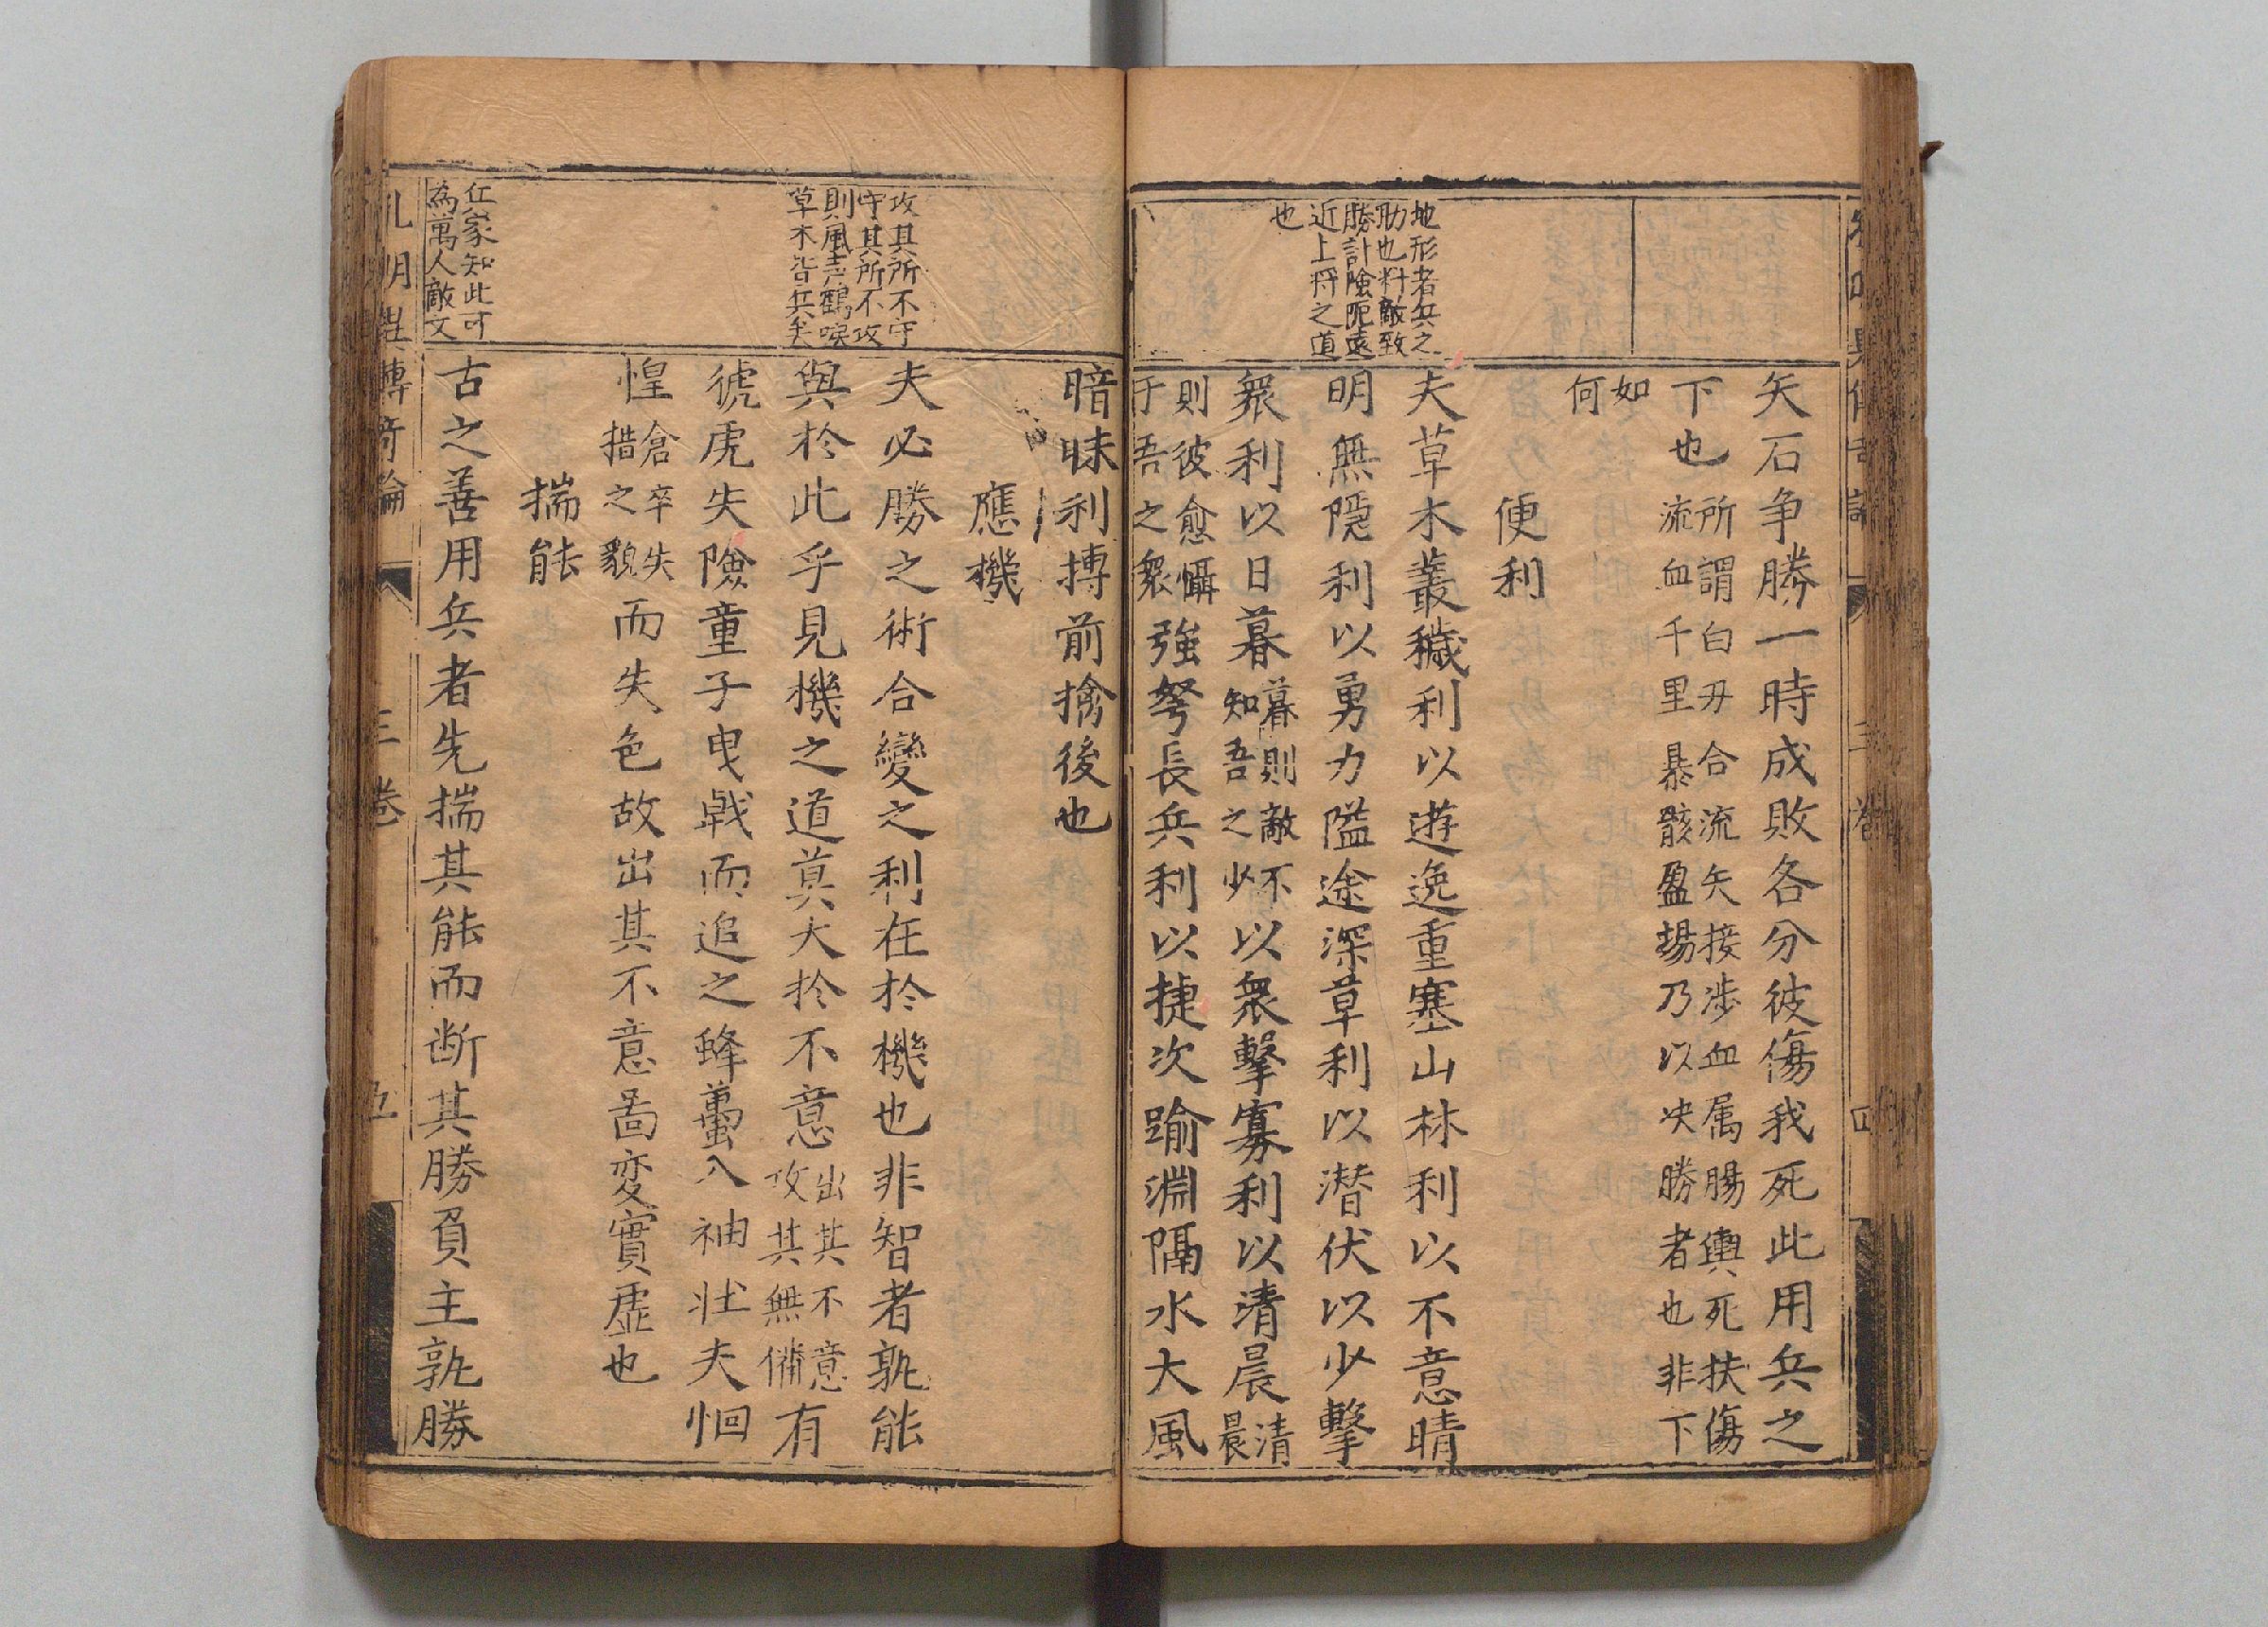 地形者兵之
助也料敵致
勝計險阨遠
近上将之道
也
矢石争勝一時成敗各分彼傷我死此用兵之
下也
所謂白刃合流矢接涉血属腸輿死扶傷
流血千里暴骸盈場乃以决勝者也非下
如
何
便利
夫草木叢穢利以遊逸重塞山林利以不意晴
明無隱利以勇力隘途深草利以潜伏以少擊
衆利以日暮
暮則敵不
知吾之少
以衆擊寡利以清晨
清
晨
則彼愈懾
于吾之衆
強弩長兵利以捷次踰淵隔水大風
攻其所不守
守其所不攻
則風声鶴唳
草木皆兵矣
仕家知此可
為萬人敵文
暗昧利搏前擒後也
應機
夫必勝之術合變之利在於機也非智者孰能
與於此乎見機之道莫大於不意
出其不意
攻其無備
有
猇虎失險童子曳戟而追之蜂蠆入袖壮夫徊
惶
倉卒失
措之貌
而失色故出其不意啚变實虚也
揣能
古之善用兵者先揣其能而断其勝負主孰勝
三卷
五